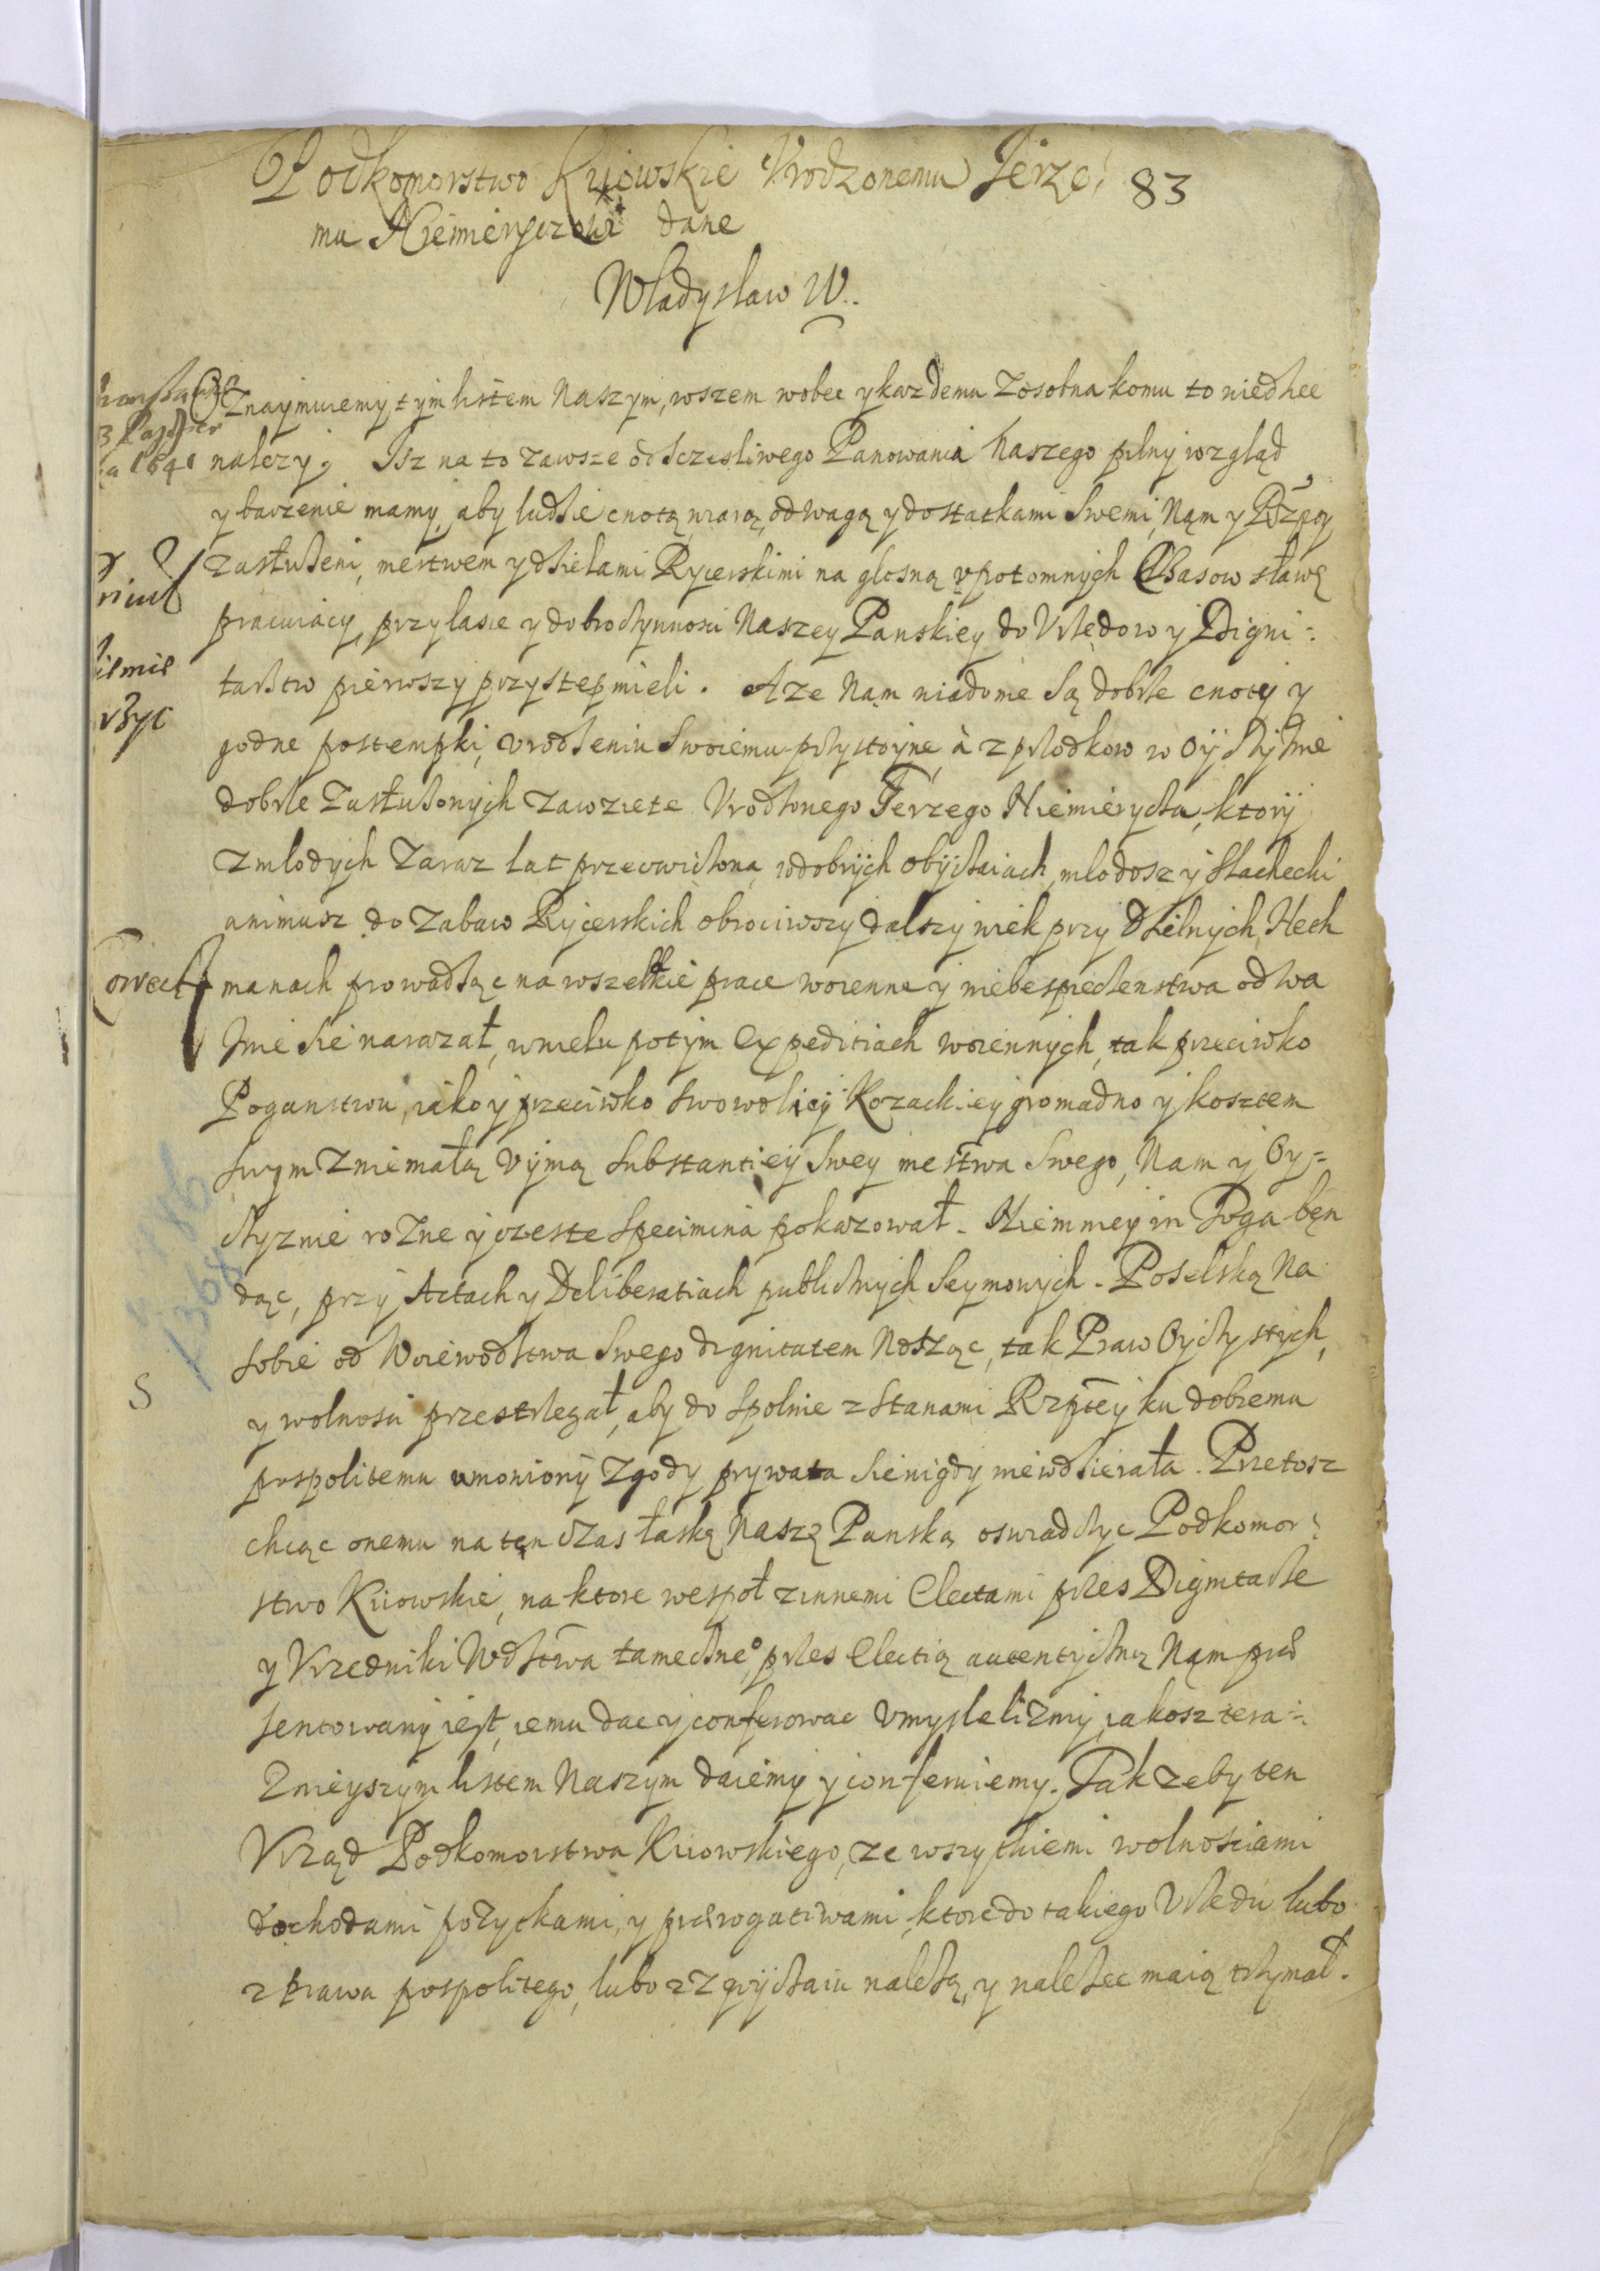 Podkomorstwo Kijowskie Vrodzonemu Jerze¿ 83
mu Niemieryczowi dane
Władysław IV.
Oznaymuiemy tym listem Naszym, wszem wobec y kazdemu Zosobna komu to wiedziec
1641 nalezy. Isz na to zawsze od sczesliwego Panowania Naszego pilny wzgląd
y baczenie mamy, aby ludzie cnotą, wiarą, odwagą y dostatkami Swemi, Nam y Rzptey
zasłużeni, mestwem y dziełami Rycerskimi na głosną v potomnych Czasow sławę
pracuiący, przy łasce y dobroczynnosci Naszey Panskiey do Vrzędow y Digni-
tarstw pierwszy przystęp mieli. A ze Nam wiadome Są dobrze cnoty y
godne postempki, vrodzeniu Swoiemu przystoyne, à z przodkow w Oyczyznie
dobrze Zasłuzonych zawziete Vrodzonego Jerzego Niemierycza, ktory
z mlodych zaraz lat przecwiczoną w dobrych obyczaiach mlodosz y szlachecki
animusz do zabaw Rycerskich obrociwszy dalszy wiek przy Dzielnych Het
manach prowadząc na wszelkie prace woienne y niebespieczenstwa odwa
znie sie narazał, w wielu potym Expeditiach woiennych, tak przeciwko
Poganstwu, iako y przeciwko swowolney Kozackiey gromadno y kosztem
swym z niemałą vymą Substantiey Swey mestwa Swego, Nam y Oy=
czyznie rozne y czeste Specimina pokazował. Niemniey in Toga bęn
dąc, przy Actach y Deliberatiach publicznych Seymowych. Poselską Na
sobie od Woiewodztwa Swego dignitatem Nosząc, tak Praw Oyczystych,
y wolnosci przestrzegał, aby do Spolnie z Stanami Rzptey ku dobremu
pospolitemu umowiony Zgody prywata sie nigdy niewdzierała. Przetosz
chcąc onemu na ten czas łaskę Naszą Panską oswiadczyc Podkomor¿
stwo Kiiowskie, na ktore wespoł z innemi Electami przes Dignitarze
y Vrzedniki Wdztwa tamecznego, przes Electią autentyczną Nam prae
sentowany iest, iemu dac y conferowac vmyslelizmy, iakosz tera-
znieyszym listem Naszym daiemy y conferuiemy. Tak zeby ten
Vrząd Podkomorstwa Kiiowskiego, ze wszytkiemi wolnosciami
dochodami pozytkami, y praerogatiwami, ktore do takiego Vrzędu lubo
z prawa pospolitego, lubo z zwyczaiu nalezą, y nalezec maią trzymał.